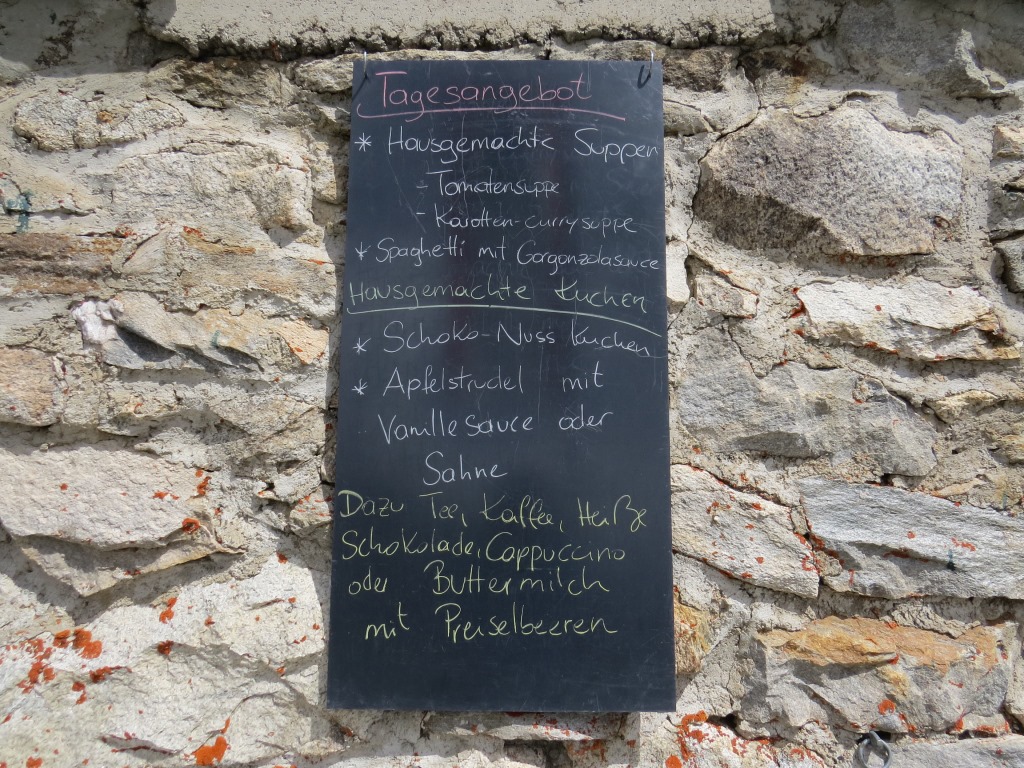 Tagesangebot
* Hausgemachte Suppen
- Tomatensuppe
- Karotten-currysuppe
* Spaghetti mit Gorgonzolasauce
Hausgemachte Kuchen
* Schoko-Nuss Kuchen
* Apfelstrudel mit
Vanillesauce oder
Sahne
Dazu Tee, Kaffee, Heiße
Schokolade, Cappuccino
oder Buttermilch
mit Preiselbeeren